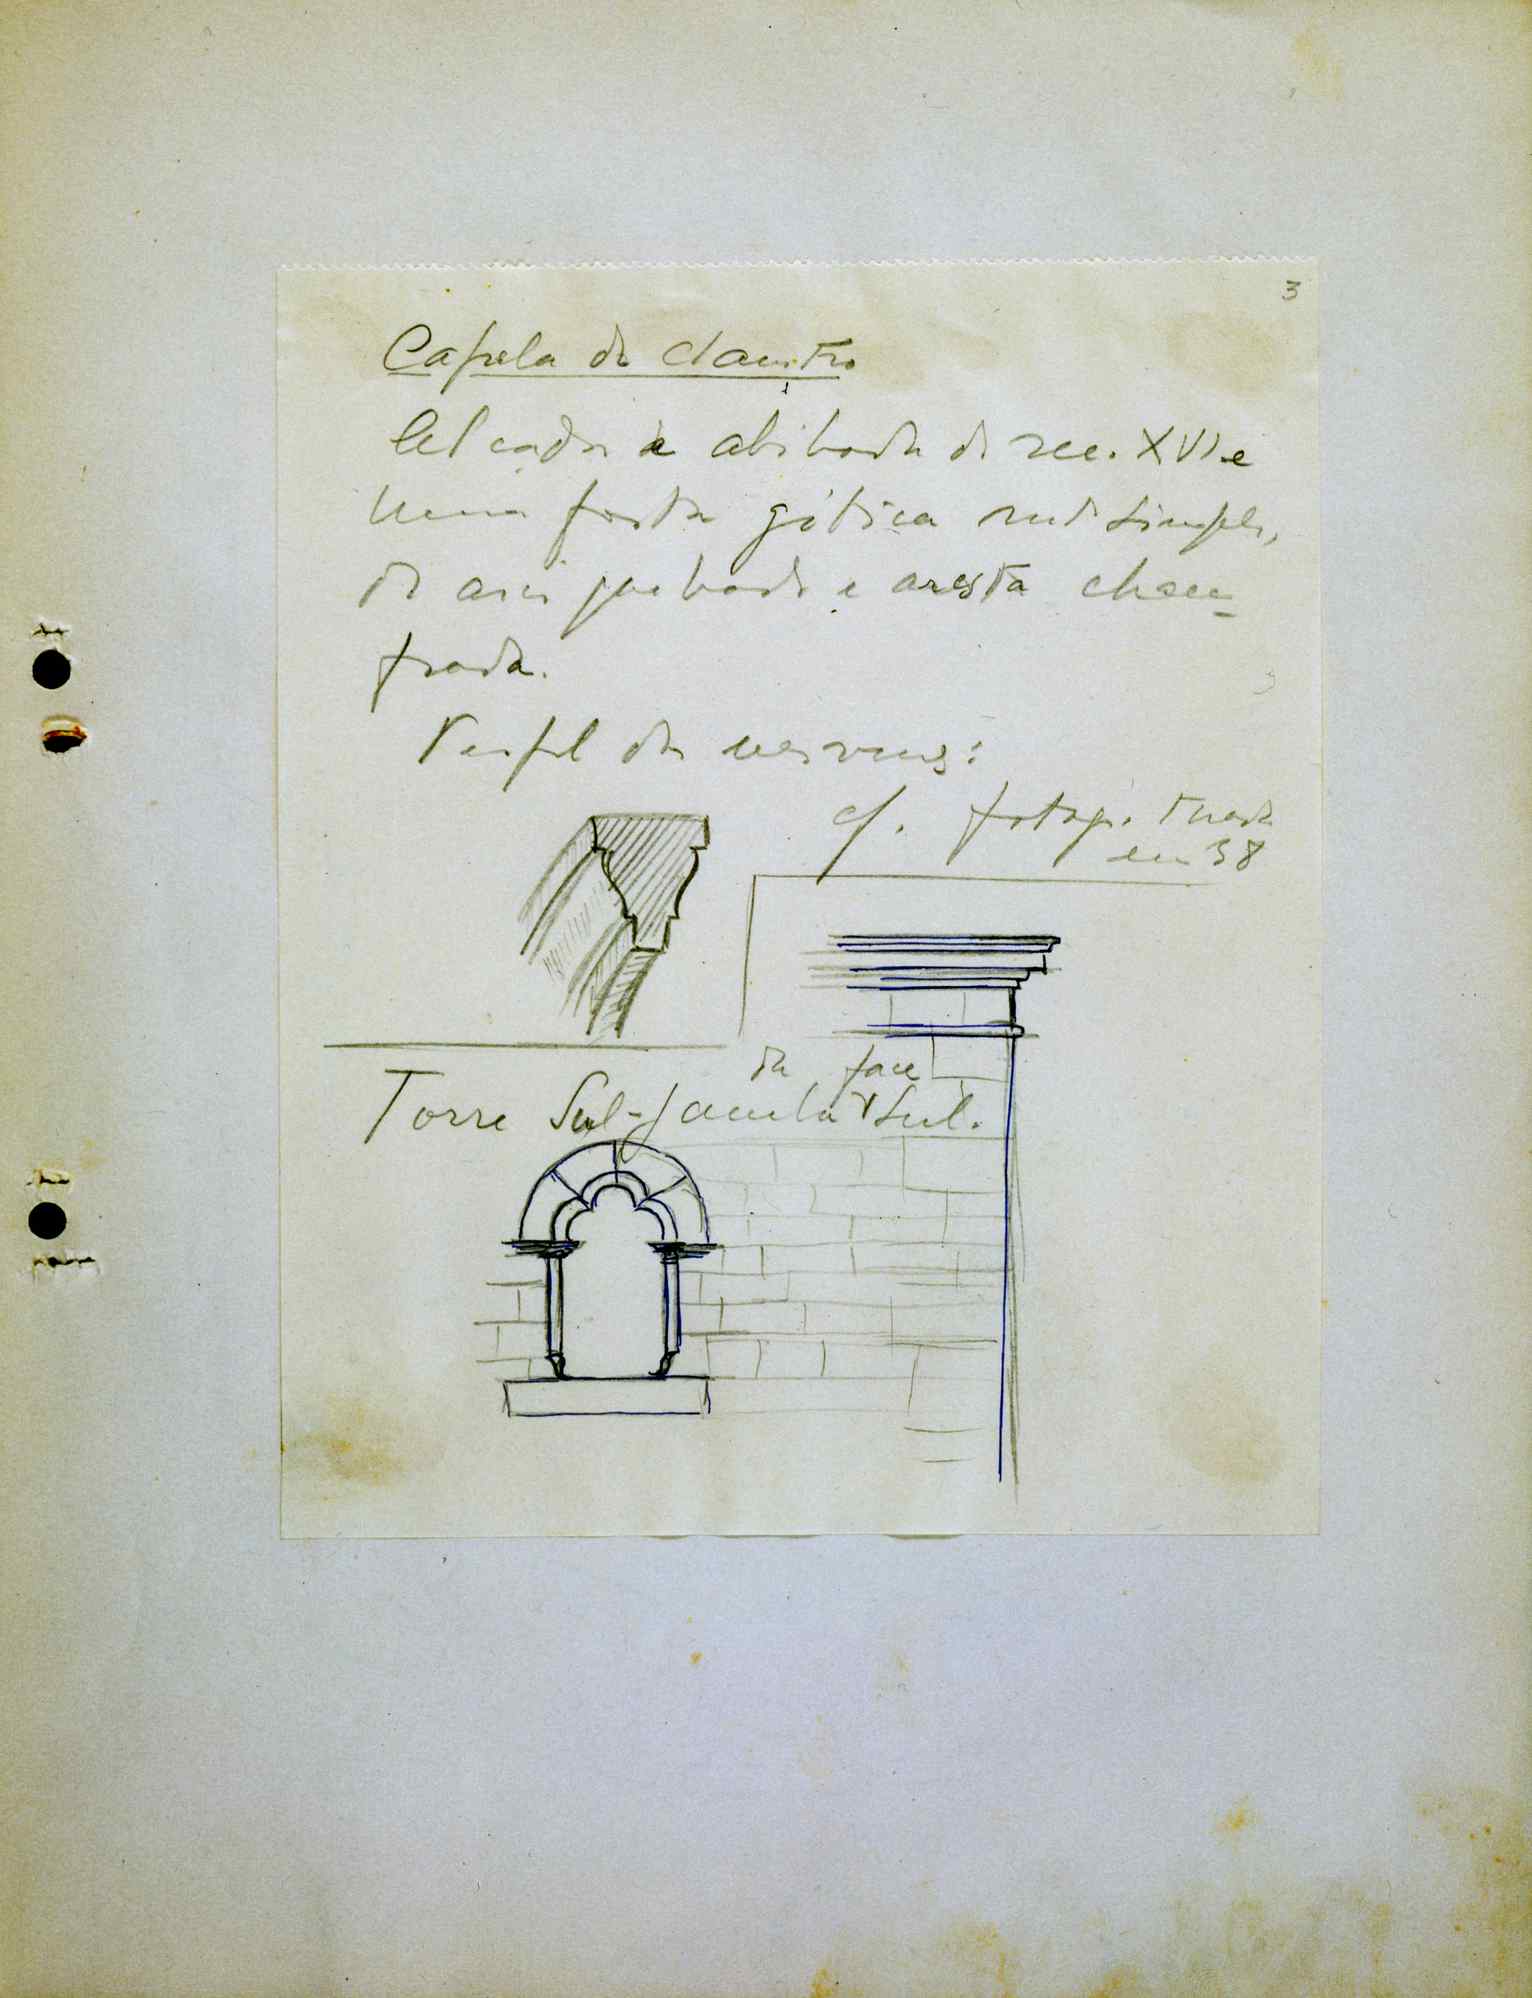 3
Capela do claustro
a abóbada do sec. XVI e
uma porta gótica muito simples,
de arco quebrado e aresta chan-
frada.
Perfil das nervuras:
cf. fotogr. tirada
em 38
Torre Sul - janela da face Sul.